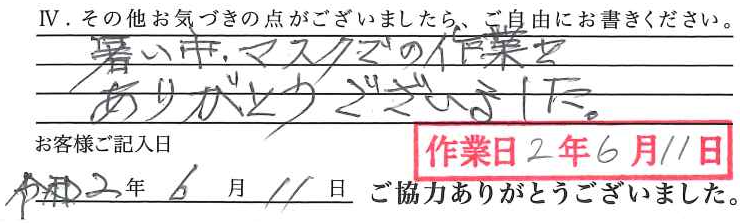 Ⅳ．その他お気づきの点がございましたら、ご自由にお書きください。
暑い中、マスクでの作業を
ありがとうございました。
お客様ご記入日
作業日2年6月11日
令和2年6月11日 ご協力ありがとうございました。